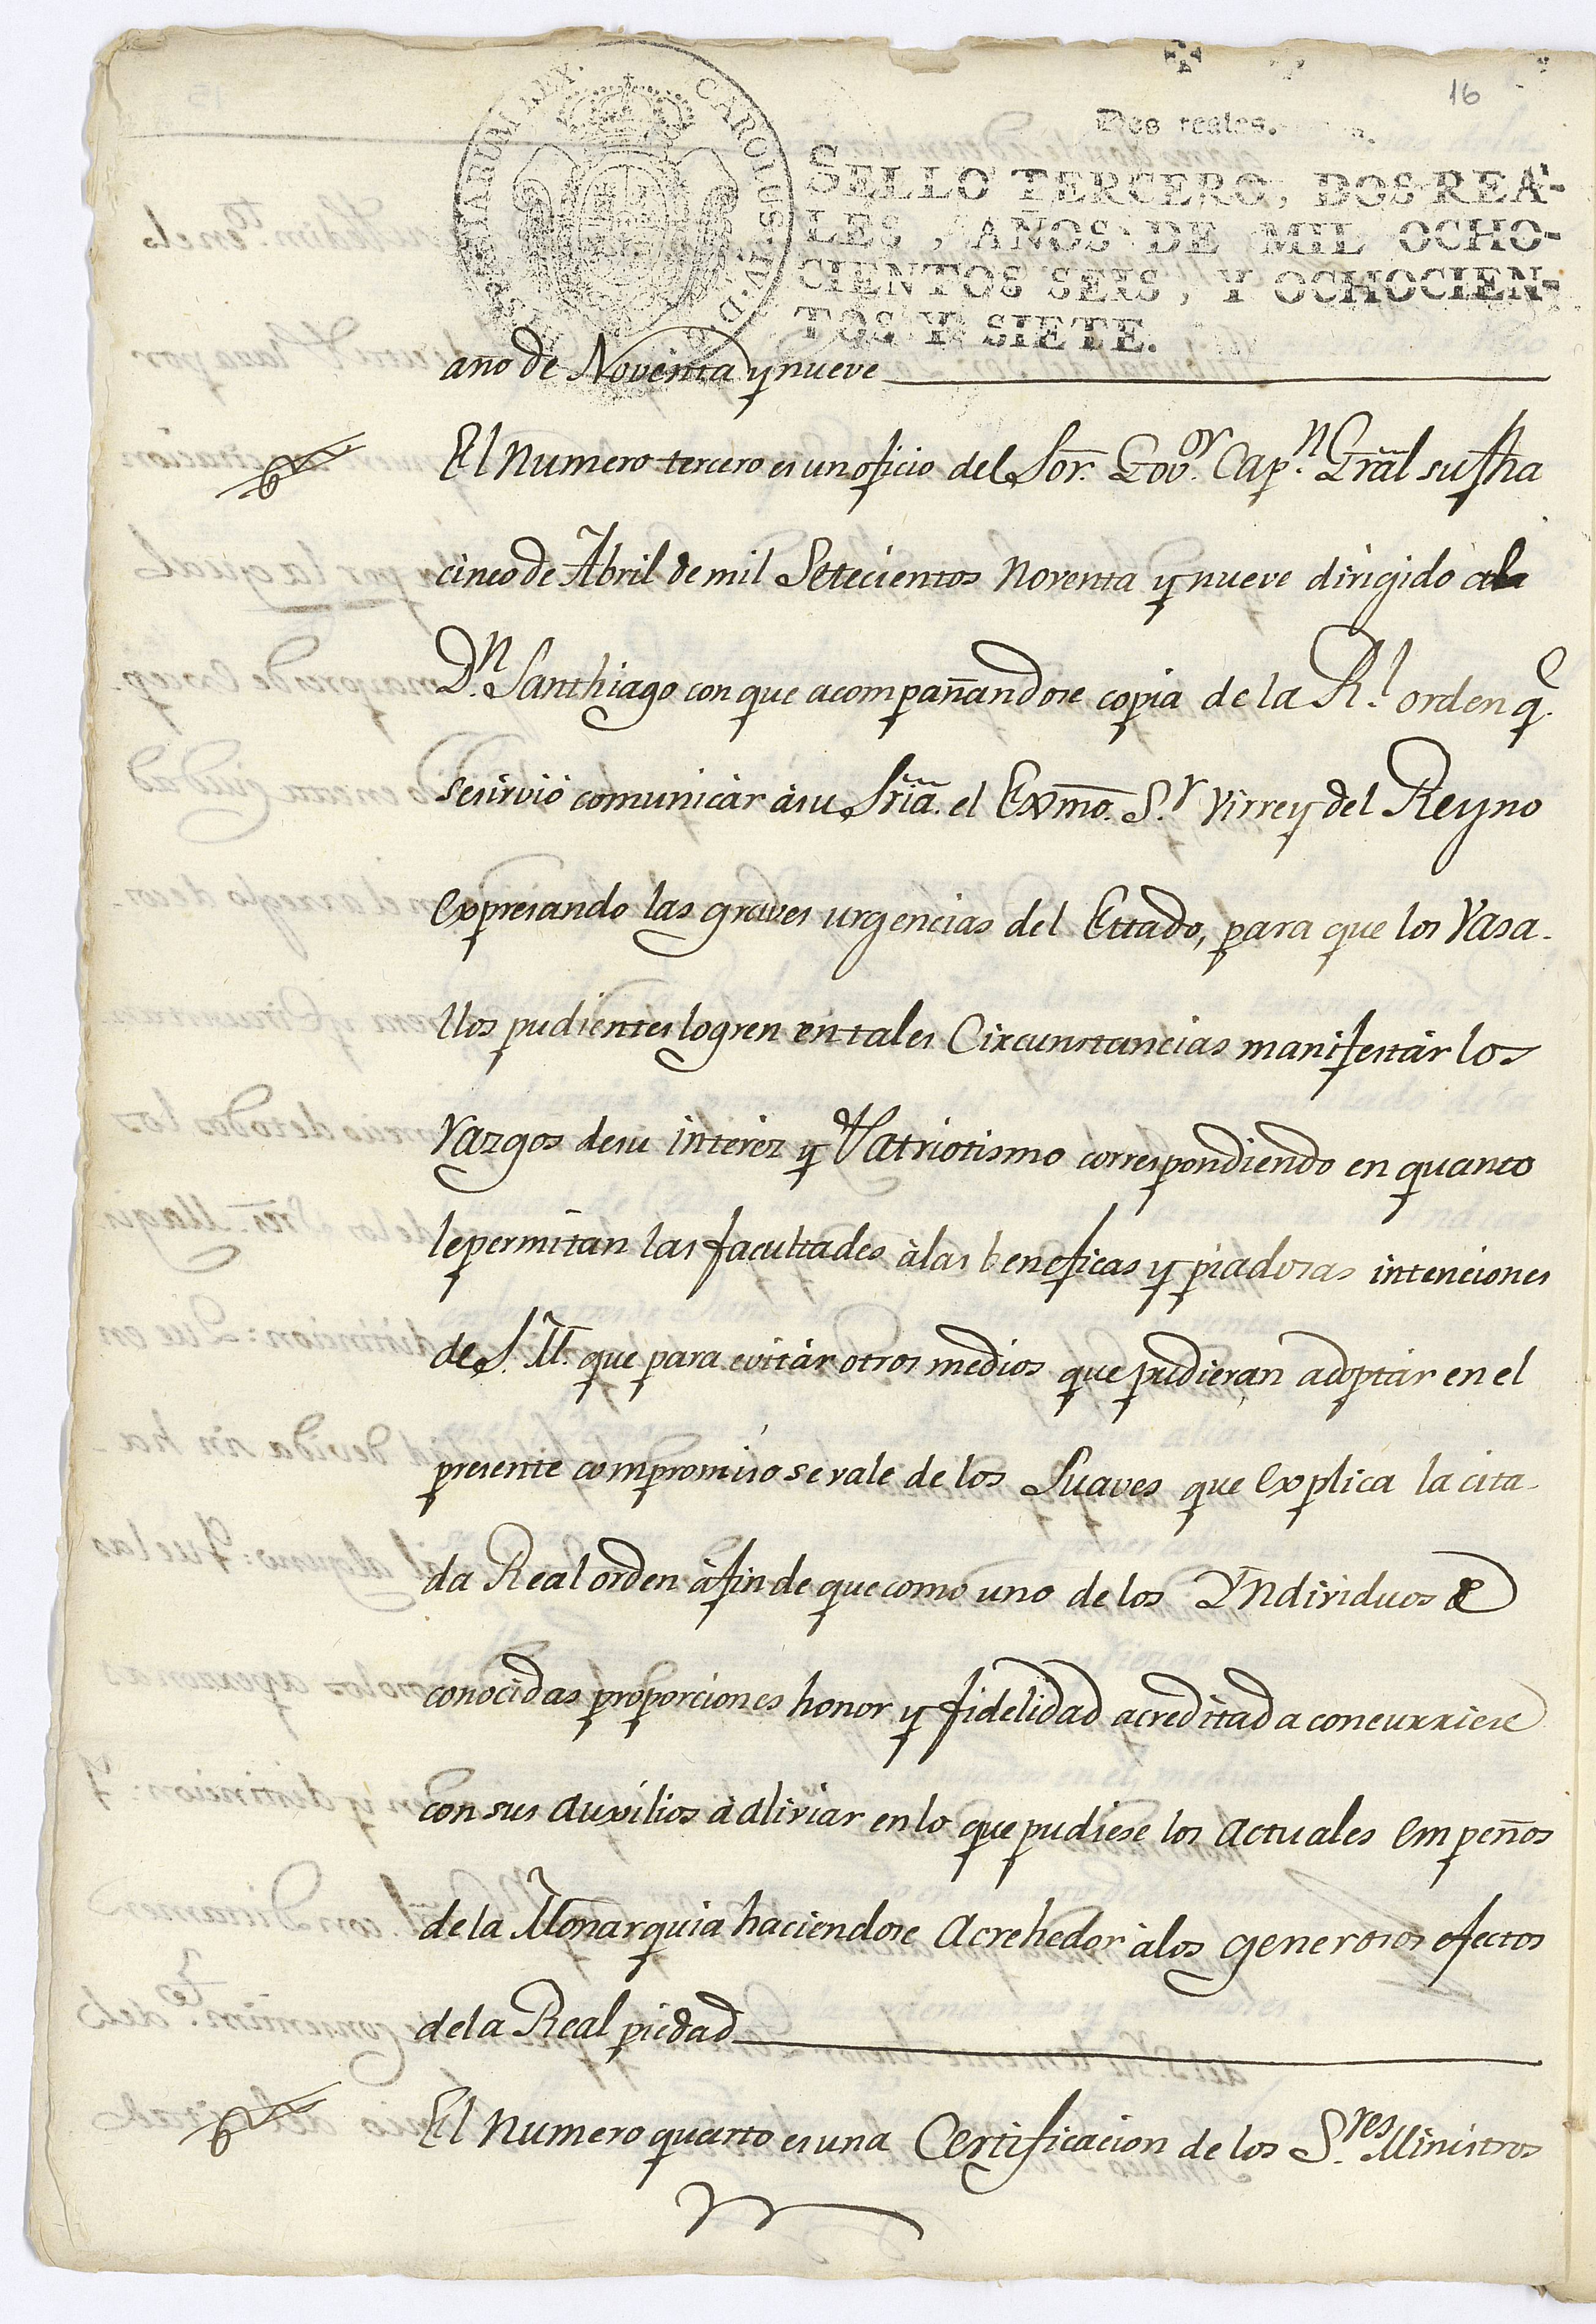 16
Dos reales.
SELLO TERCERO, DOS REA-
LES, AÑOS DE MIL OCHO-
CIENTOS SEIS, Y OCHOCIEN-
TOS Y SIETE.
CAROLUS IV D. G. HISP. ET INDIARUM REX.
año de Noventa y nueve
El Numero tercero es un oficio del Sor. Gov.or Cap.n Gral su fha
cinco de Abril de mil Setecientos Noventa y nueve dirigido ala
D.n Santhiago con que acompañandose copia de la R.l orden q.e
se sirvió comunicár àsu Sria. el Exmo. S.r Virrey del Reyno
expresando las graves urgencias del Estado, para que los Vasa-
llos pudientes logren en tales Circunstancias manifestár los
razgos desu interéz y Patriotismo correspondiendo en quanto
le permitan las facultades àlas beneficas y piadosas intenciones
de S. M. que para evitár otros medios que pudieran adoptár en el
presente compromiso se vale de los Suaves que explica la cita-
da Real orden àfin de que como uno de los Yndividuos de
conocidas proporciones honor y fidelidad acreditada concurriese
con sus auxilios à aliviar en lo que pudiese los actuales empeños
de la Monarquia haciendose Acrehedor àlos generosos efectos
dela Real piedad
El Numero quarto es una Certificacion de los S.res Ministros